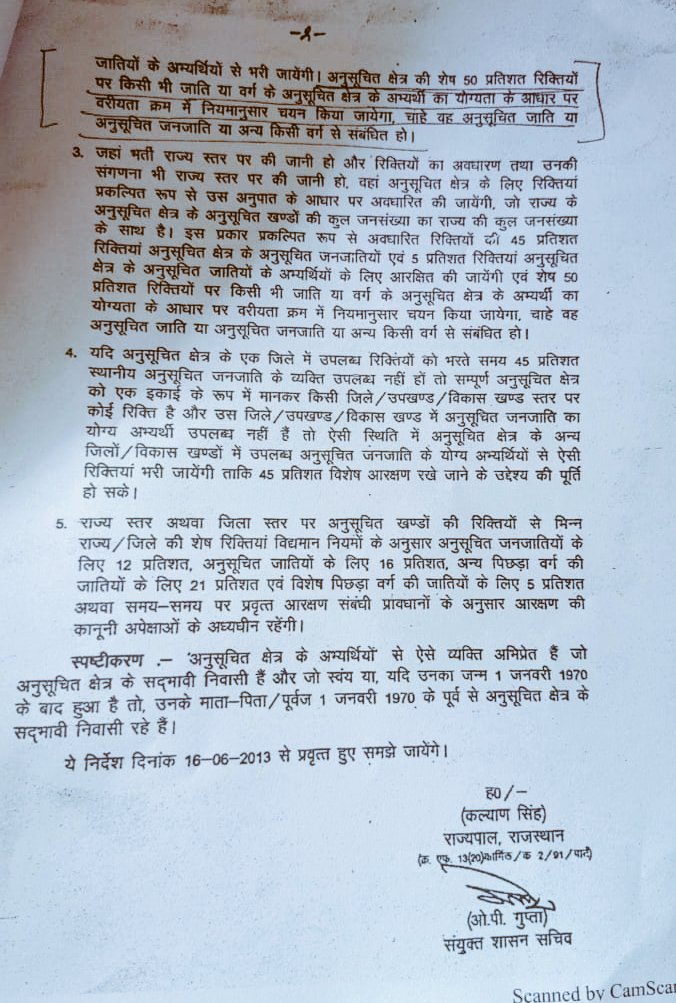 -2-
जातियों के अभ्यर्थियों से भरी जायेंगी। अनुसूचित क्षेत्र की शेष 50 प्रतिशत रिक्तियों
पर किसी भी जाति या वर्ग के अनुसूचित क्षेत्र के अभ्यर्थी का योग्यता के आधार पर
वरीयता क्रम में नियमानुसार चयन किया जायेगा, चाहे वह अनुसूचित जाति या
अनुसूचित जनजाति या अन्य किसी वर्ग से संबंधित हो।
3. जहां भर्ती राज्य स्तर पर की जानी हो और रिक्तियों का अवधारण तथा उनकी
संगणना भी राज्य स्तर पर की जानी हो, वहां अनुसूचित क्षेत्र के लिए रिक्तियां
प्रकल्पित रूप से उस अनुपात के आधार पर अवधारित की जायेंगी, जो राज्य के
अनुसूचित क्षेत्र के अनुसूचित खण्डों की कुल जनसंख्या का राज्य की कुल जनसंख्या
के साथ है। इस प्रकार प्रकल्पित रूप से अवधारित रिक्तियों की 45 प्रतिशत
रिक्तियां अनुसूचित क्षेत्र के अनुसूचित जनजातियों एवं 5 प्रतिशत रिक्तियां अनुसूचित
क्षेत्र के अनुसूचित जातियों के अभ्यर्थियों के लिए आरक्षित की जायेंगी एवं शेष 50
प्रतिशत रिक्तियों पर किसी भी जाति या वर्ग के अनुसूचित क्षेत्र के अभ्यर्थी का
योग्यता के आधार पर वरीयता क्रम में नियमानुसार चयन किया जायेगा, चाहे वह
अनुसूचित जाति या अनुसूचित जनजाति या अन्य किसी वर्ग से संबंधित हो।
4. यदि अनुसूचित क्षेत्र के एक जिले में उपलब्ध रिक्तियों को भरते समय 45 प्रतिशत
स्थानीय अनुसूचित जनजाति के व्यक्ति उपलब्ध नहीं हों तो सम्पूर्ण अनुसूचित क्षेत्र
को एक इकाई के रूप में मानकर किसी जिले/उपखण्ड/विकास खण्ड स्तर पर
कोई रिक्ति है और उस जिले/उपखण्ड/विकास खण्ड में अनुसूचित जनजाति का
योग्य अभ्यर्थी उपलब्ध नहीं हैं तो ऐसी स्थिति में अनुसूचित क्षेत्र के अन्य
जिलों/विकास खण्डों में उपलब्ध अनुसूचित जनजाति के योग्य अभ्यर्थियों से ऐसी
रिक्तियां भरी जायेंगी ताकि 45 प्रतिशत विशेष आरक्षण रखे जाने के उद्देश्य की पूर्ति
हो सके।
5. राज्य स्तर अथवा जिला स्तर पर अनुसूचित खण्डों की रिक्तियों से भिन्न
राज्य/जिले की शेष रिक्तियां विद्यमान नियमों के अनुसार अनुसूचित जनजातियों के
लिए 12 प्रतिशत, अनुसूचित जातियों के लिए 16 प्रतिशत, अन्य पिछड़ा वर्ग की
जातियों के लिए 21 प्रतिशत एवं विशेष पिछड़ा वर्ग की जातियों के लिए 5 प्रतिशत
अथवा समय-समय पर प्रवृत्त आरक्षण संबंधी प्रावधानों के अनुसार आरक्षण की
कानूनी अपेक्षाओं के अध्यधीन रहेंगी।
स्पष्टीकरण .– 'अनुसूचित क्षेत्र के अभ्यर्थियों' से ऐसे व्यक्ति अभिप्रेत हैं जो
अनुसूचित क्षेत्र के सद्भावी निवासी हैं और जो स्वंय या, यदि उनका जन्म 1 जनवरी 1970
के बाद हुआ है तो, उनके माता-पिता/पूर्वज 1 जनवरी 1970 के पूर्व से अनुसूचित क्षेत्र के
सद्भावी निवासी रहे हैं।
ये निर्देश दिनांक 16-06-2013 से प्रवृत्त हुए समझे जायेंगे।
ह0/-
(कल्याण सिंह)
राज्यपाल, राजस्थान
(क्र. एफ. 13(20)कार्मिक/क 2/91/पार्ट)
(ओ.पी. गुप्ता)
संयुक्त शासन सचिव
Scanned by CamScan